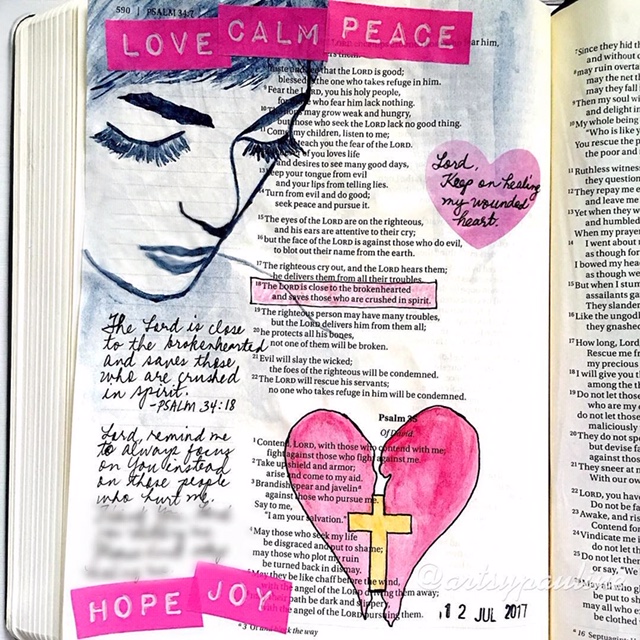 590 | PSALM 34:7
LOVE CALM PEACE
fear him,
them.
that the LORD is good;
blessed the one who takes refuge in him.
9Fear the LORD, you his holy people,
who fear him lack nothing.
may grow weak and hungry,
but those who seek the LORD lack no good thing.
11Come, my children, listen to me;
teach you the fear of the LORD.
of you loves life
and desires to see many good days,
13keep your tongue from evil
and your lips from telling lies.
14Turn from evil and do good;
seek peace and pursue it.
15The eyes of the LORD are on the righteous,
and his ears are attentive to their cry;
16but the face of the LORD is against those who do evil,
to blot out their name from the earth.
17The righteous cry out, and the LORD hears them;
he delivers them from all their troubles.
18The LORD is close to the brokenhearted
and saves those who are crushed in spirit.
19The righteous person may have many troubles,
but the LORD delivers him from them all;
20he protects all his bones,
not one of them will be broken.
21Evil will slay the wicked;
the foes of the righteous will be condemned.
22The LORD will rescue his servants;
no one who takes refuge in him will be condemned.
Lord,
Keep on healing
my wounded
heart.
The Lord is close
to the brokenhearted
and saves those
who are crushed
in spirit.
-PSALM 34:18
Lord, remind me
to always focus
on You instead
on those people
who hurt me.
Psalm 35
Of David.
1Contend, LORD, with those who contend with me;
fight against those who fight against me.
2Take up shield and armor;
arise and come to my aid.
3Brandish spear and javelin
against those who pursue me.
Say to me,
"I am your salvation."
4May those who seek my life
be disgraced and put to shame;
may those who plot my ruin
be turned back in dismay.
5May they be like chaff before the wind,
with the angel of the LORD driving them away;
6may their path be dark and slippery,
with the angel of the LORD pursuing them.
HOPE JOY
@artsypauline
12 JUL 2017
3 Or and block the way
7Since they hid th
and without c
8may ruin overta
may the net t
may they fall i
9Then my soul wi
and delight in
10My whole being
"Who is like y
You rescue the p
the poor and
11Ruthless witness
they question
12They repay me e
and leave me
13Yet when they w
and humbled
When my prayer
14I went about
as though for
I bowed my hea
as though we
15But when I stum
assailants ga
They slandere
16Like the ungodl
they gnashed
17How long, Lord
Rescue me fr
my precious
18I will give you t
among the t
19Do not let those
who are my e
do not let those
maliciously
20They do not sp
but devise fa
against thos
21They sneer at m
With our ow
22LORD, you have
Do not be fa
23Awake, and ris
Contend for
24Vindicate me i
do not let th
25Do not let then
or say, "We
26May all who g
be put to sh
may all who ex
be clothed
16 Septuagint